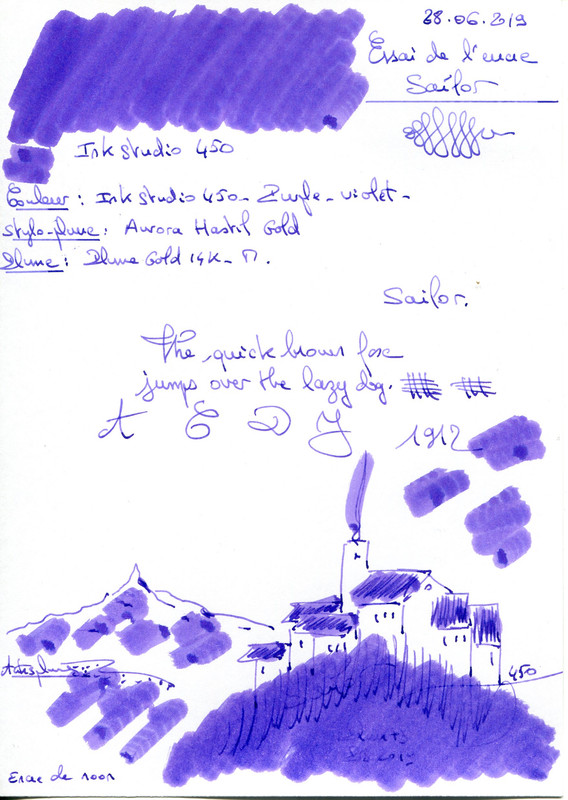 28.06.2019
Essai de l'encre
Sailor
Ink studio 450
Couleur : Ink studio 450 - Purple - violet -
Stylo-plume : Aurora Hastil Gold
Plume : Plume Gold 14K - M.
Sailor.
The quick brown fox
jumps over the lazy dog.
A E D J 1912
450